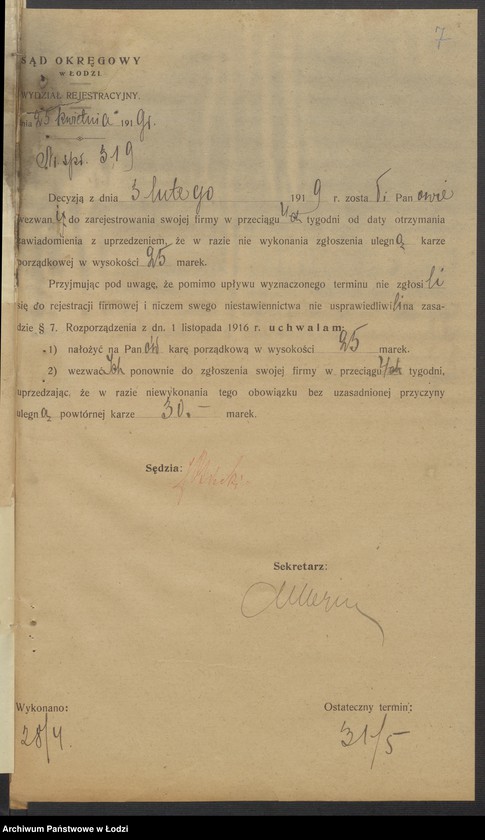 7
SĄD OKRĘGOWY
w ŁODZI
WYDZIAŁ REJESTRACYJNY.
dnia 25 kwietnia 1919 r.
Nr spr. 319
Decyzją z dnia 3 lutego 1919 r. zosta li Panowie
wezwani do zarejestrowania swojej firmy w przeciągu tygodni od daty otrzymania
zawiadomienia z uprzedzeniem, że w razie nie wykonania zgłoszenia ulegną karze
porządkowej w wysokości 25 marek.
Przyjmując pod uwagę, że pomimo upływu wyznaczonego terminu nie zgłosili
się do rejestracji firmowej i niczem swego niestawiennictwa nie usprawiedliwili na zasa-
dzie § 7. Rozporządzenia z dn. 1 listopada 1916 r. uchwalam:
1) nałożyć na Panów karę porządkową w wysokości 25 marek.
2) wezwać Ich ponownie do zgłoszenia swojej firmy w przeciągu tygodni,
uprzedzając, że w razie niewykonania tego obowiązku bez uzasadnionej przyczyny
ulegną powtórnej karze 30.— marek.
Sędzia:
Sekretarz:
Wykonano:
28/4.
Ostateczny termin:
31/5
Archiwum Państwowe w Łodzi